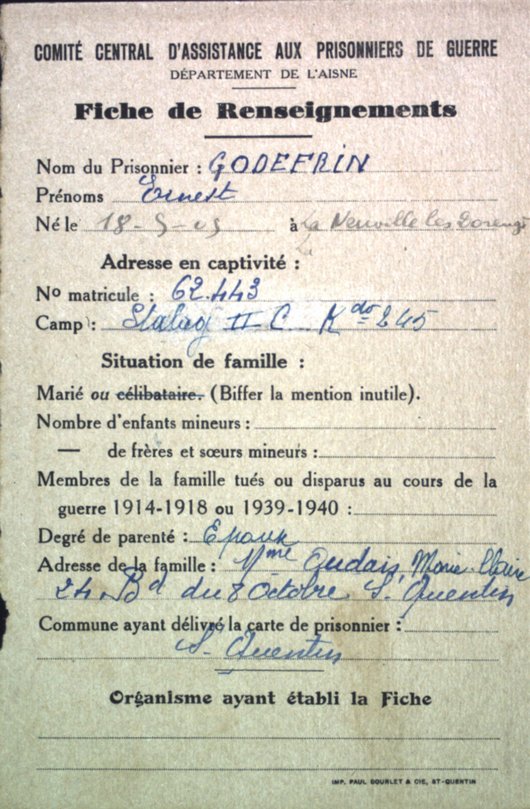 COMITÉ CENTRAL D'ASSISTANCE AUX PRISONNIERS DE GUERRE
DÉPARTEMENT DE L'AISNE
Fiche de Renseignements
Nom du Prisonnier : GODEFRIN
Prénoms Ernest
Né le 18-5-05 à La Neuville les Dorengt
La
Adresse en captivité :
No matricule : 62.443
Camp : Stalag II C Kdo 245
Situation de famille :
Marié ou célibataire. (Biffer la mention inutile).
Nombre d'enfants mineurs :
— de frères et sœurs mineurs :
Membres de la famille tués ou disparus au cours de la
guerre 1914-1918 ou 1939-1940 :
Degré de parenté : Epoux
Adresse de la famille : Mme Oudais Marie-Claire
24 Bd du 8 Octobre St Quentin
Commune ayant délivré la carte de prisonnier :
St Quentin
Organisme ayant établi la Fiche
IMP. PAUL GOURLET & CIE, ST-QUENTIN